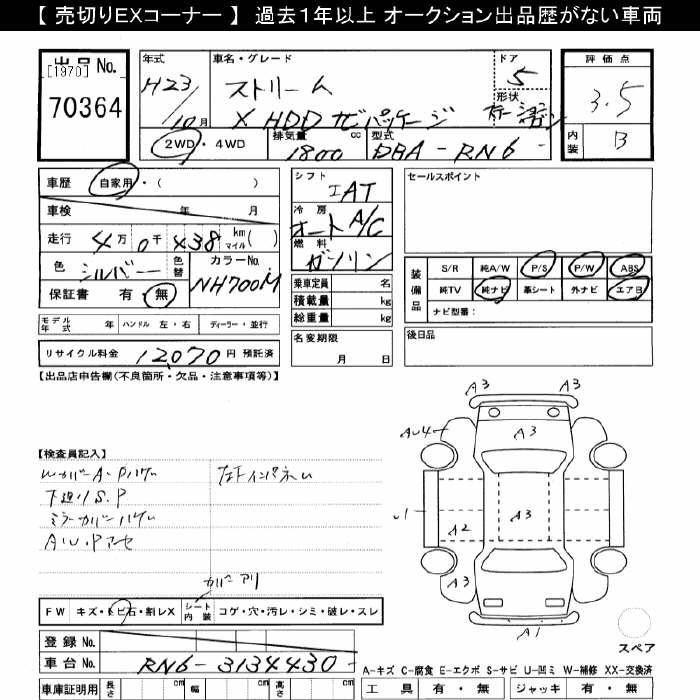 【 売切りEXコーナー 】 過去1年以上 オークション出品歴がない車両
出品 No.
[1970]
70364
年式
H23/10月
車名・グレード
ストリーム
X HDDナビパッケージ
ドア
5
形状
評価点
3.5
内装
B
2WD・4WD
排気量
1800
cc
型式
DBA-RN6-
車歴 自家用・( )
車検 年 月
走行 4万0千438 km マイル( )
色 シルバー 色替 カラーNo. NH700M
保証書 有・無
シフト
IAT
冷房
オートA/C
燃料
ガソリン
乗車定員 名
積載量 kg
総重量 kg
セールスポイント
装備品
S/R 純A/W P/S P/W ABS
純TV 純ナビ 革シート 外ナビ エアB
ナビ型番:
モデル年式 年 ハンドル 左・右 ディーラー・並行
リサイクル料金 12070 円 預託済
名変期限
月 日
後日品
【出品店申告欄(不良箇所・欠品・注意事項等)】
【検査員記入】
Wカバー A・Pハゲ
下廻りS.P
ミラーカバーハゲ
A.U.Pアセ
カバー アリ
A3 A3
AU4
A3
A3
A2
A3
A1
FW キズ・トビ石・割レX シート内装 コゲ・穴・汚レ・シミ・破レ・スレ
スペア
登録 No.
車台 No. RN6-3134430-
A-キズ C-腐食 E-エクボ S-サビ U-凹ミ W-補修 XX-交換済
車庫証明用 長さ cm 幅 cm 高さ cm
工具 有・無 ジャッキ 有・無